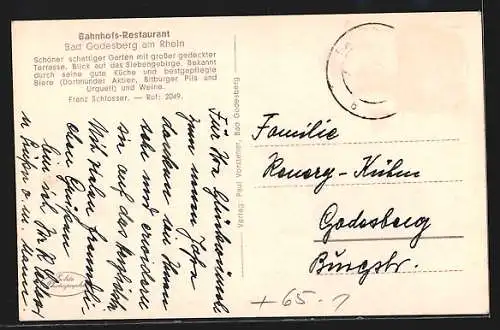 Bahnhofs-Restaurant
Bad Godesberg am Rhein
Schöner schattiger Garten mit großer gedeckter
Terrasse. Blick auf das Siebengebirge. Bekannt
durch seine gute Küche und bestgepflegte
Biere (Dortmunder Aktien, Bitburger Pils und
Urquell) und Weine.
Franz Schlosser. — Ruf: 2049.
Für Ihre Glückwünsche
zum neuen Jahr
danken wir Ihnen
sehr und erwidern
sie auf das herzlichste
Mit vielen freundli-
chen Grüßen
Echte
Photographie
Verlag: Paul Vorsteher, Bad Godesberg
Familie
Godesberg
Burgstr.
+ 65.-